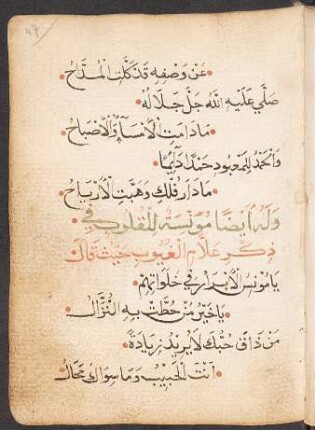 عَنْ وَصْفِهِ قَدْ كَلَّتِ الْمُدَّاحُ
صَلَّى عَلَيْهِ اللَّهُ جَلَّ جَلَالُهُ
مَا دَامَتِ الْأَمْسَاءُ وَالْأَصْبَاحُ
وَالْحَمْدُ لِلْمَعْبُودِ حَمْدًا دَائِمًا
مَا دَارَ فُلْكٌ وَهَبَّتِ الْأَرْيَاحُ
وَلَهُ أَيْضًا مُونِسَةٌ لِلْقُلُوبِ فِي
ذِكْرِ عَلَّامِ الْغُيُوبِ حَيْثُ قَالَ
يَا مُونِسَ الْأَبْرَارِ فِي خَلَوَاتِهِمْ
يَا خَيْرَ مَنْ حُطَّتْ بِهِ النُّزَّالُ
مَنْ ذَاقَ حُبَّكَ لَا يُرِيدُ زِيَادَةً
أَنْتَ الْحَبِيبُ وَمَا سِوَاكَ مُحَالُ